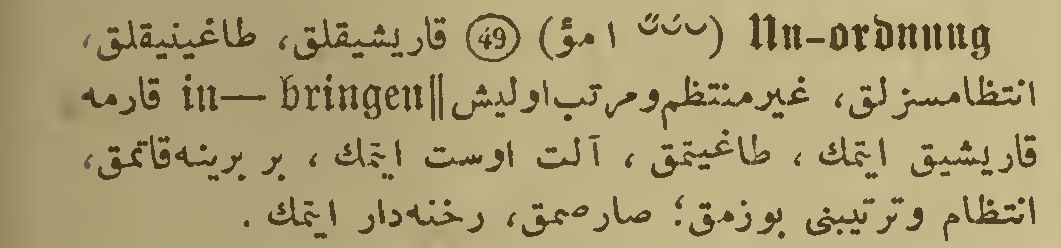 Un-ordnung (‿‿‿ ا مؤ) ㊾ قاریشیقلق، طاغینیقلق،
انتظامسزلق، غیرمنتظم‌ومرتب‌اولیش ‖ in— bringen قارمه
قاریشیق ایتمك، طاغیتمق، آلت اوست ایتمك، بر برینه‌قاتمق،
انتظام وترتیبنی بوزمق؛ صارصمق، رخنه‌دار ایتمك.